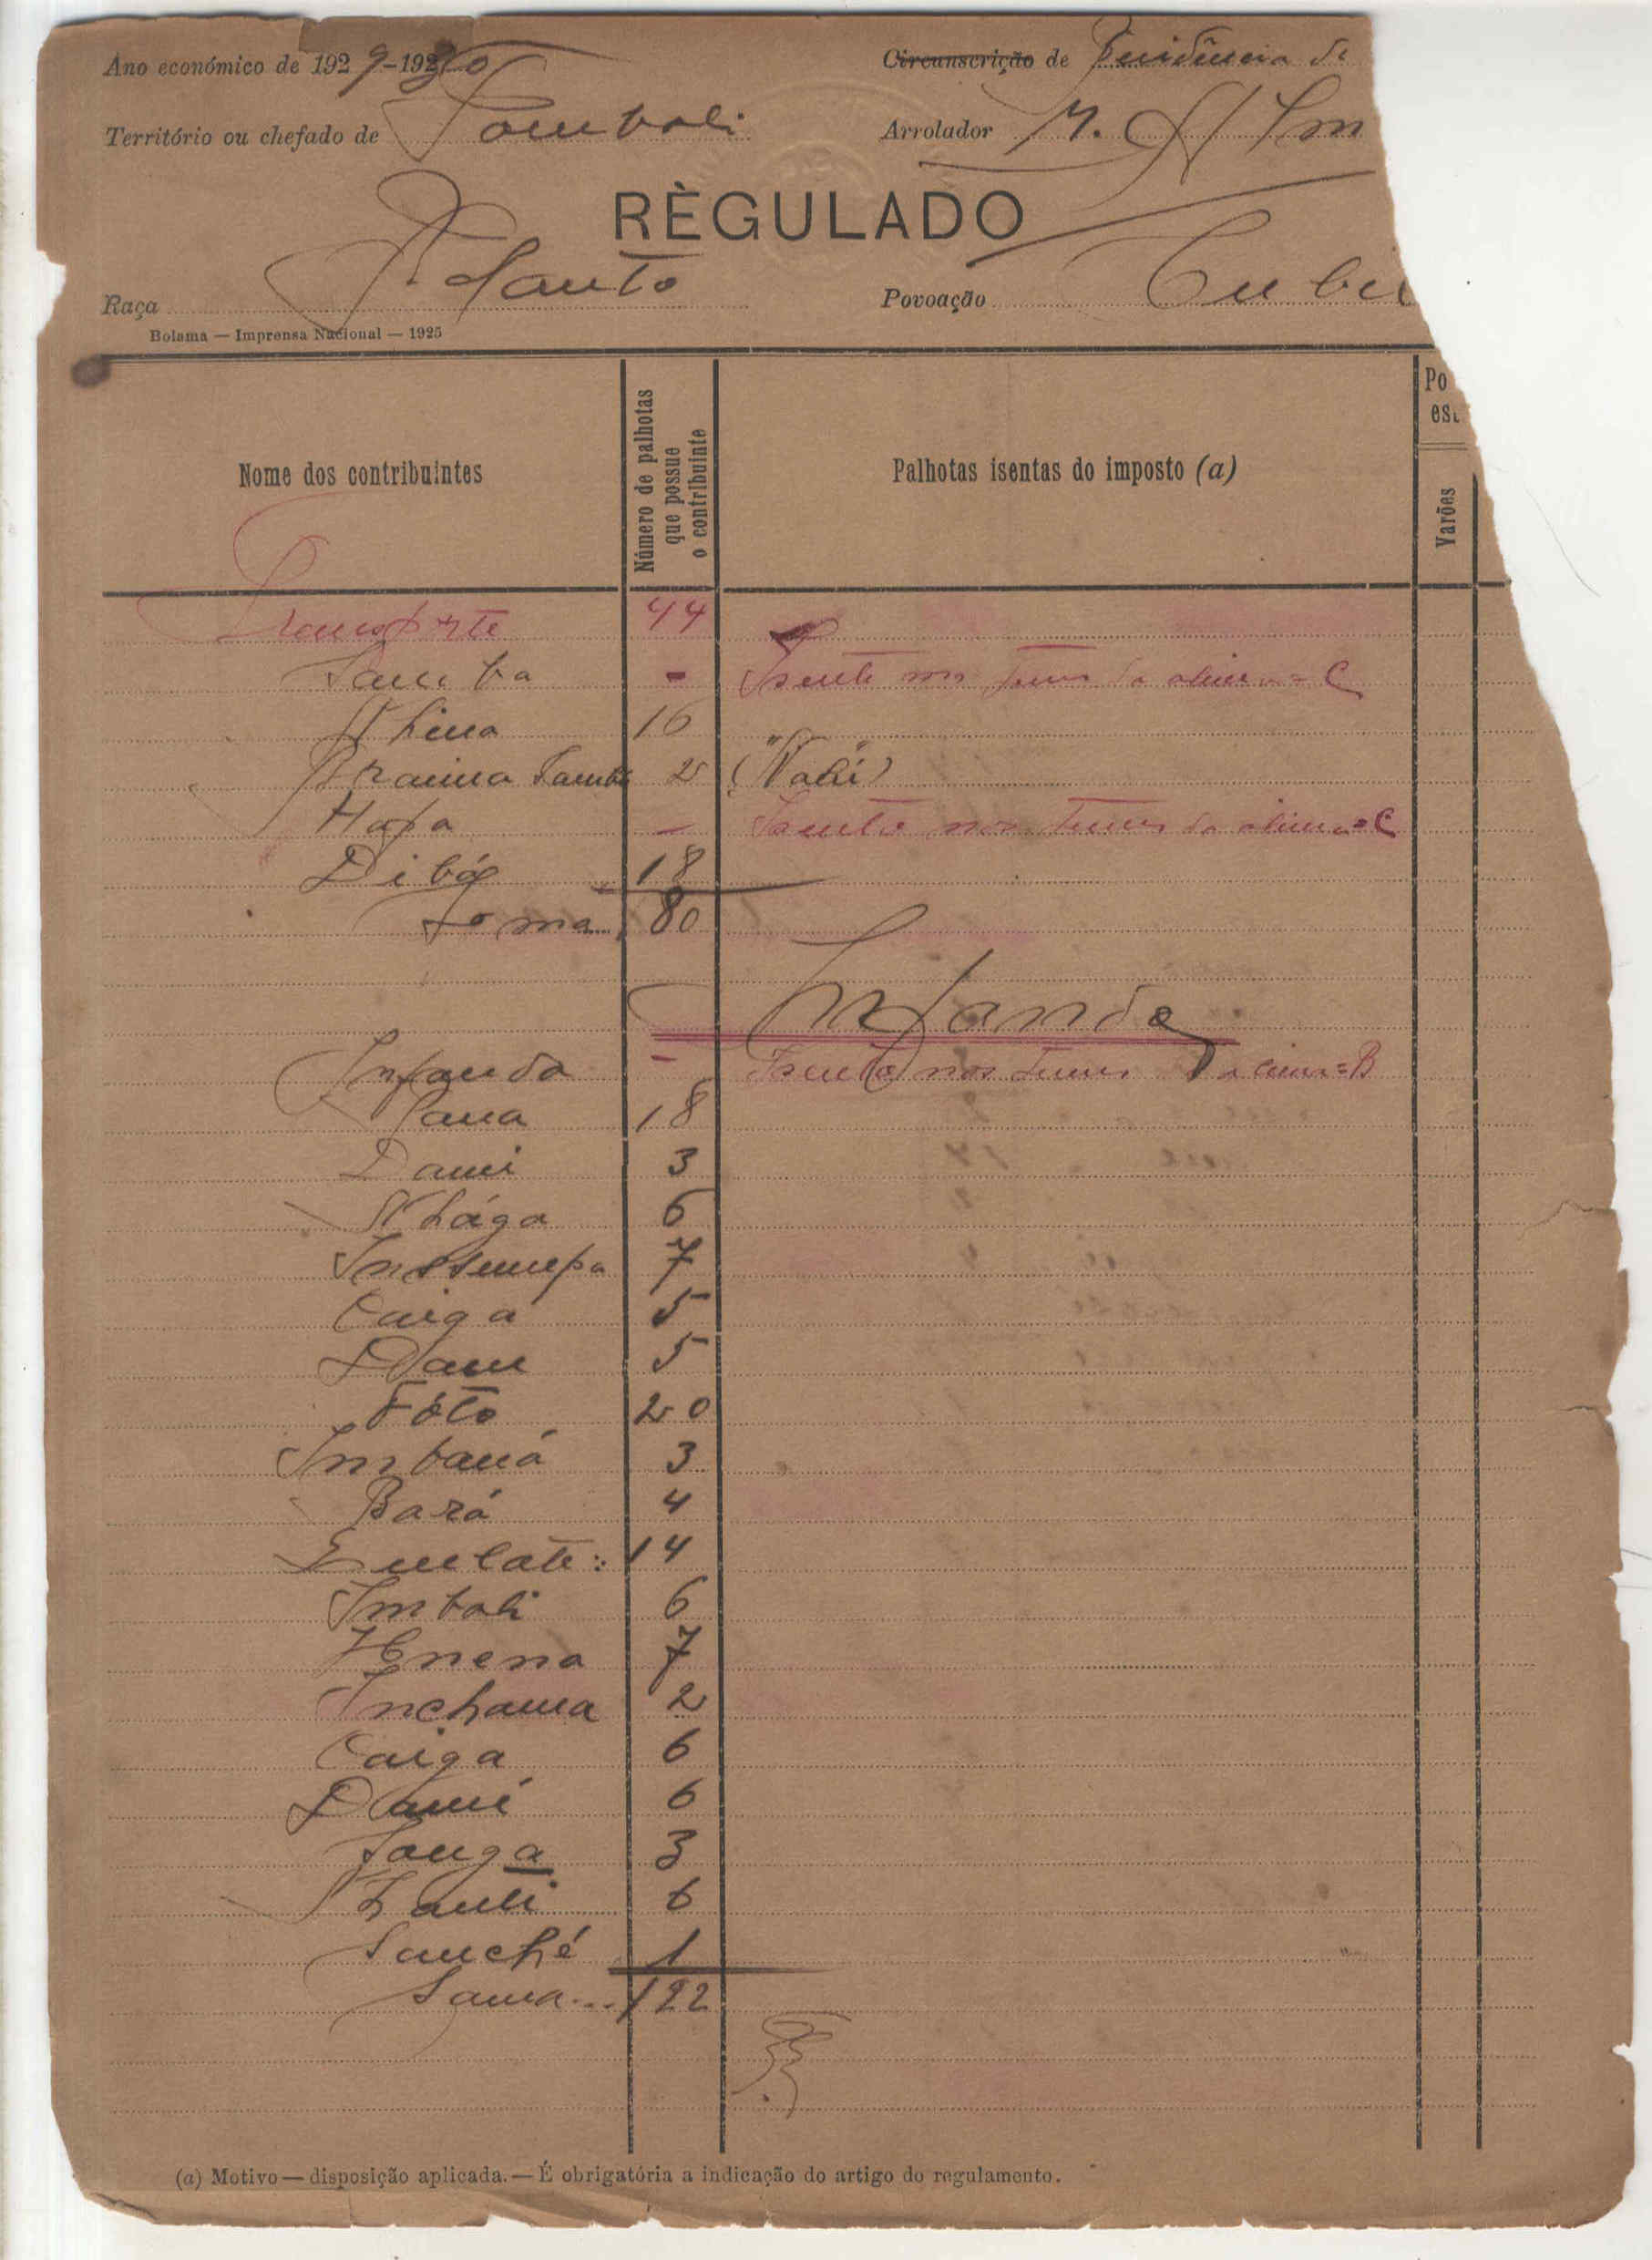 Ano económico de 1929-1930
Circunscrição de Residência de
Território ou chefado de Tombali
Arrolador M.
RÈGULADO
Raça Balanta
Povoação
Bolama — Imprensa Nacional — 1925
Nome dos contribuintes
Número de palhotas que possue o contribuinte
Palhotas isentas do imposto (a)
Po
es
Varões
Transporte 44
Samba - Isento nos termos da alinea = C
N'hina 16
Braima Samba 2 (Nalú)
Hafa - Isento nos termos da alinea = C
Dibó 18
Soma... 80
Infanda
Infanda - Isento nos termos da alinea = B
Sana 18
Dami 3
N'hága 6
7
Caiga 5
Dam 5
Fóto 20
Imbaná 3
Bará 4
14
Imbali 6
7
Inchama 2
Caiga 6
Damé 6
Sanga 3
6
Sanché 1
Soma... 122
(a) Motivo — disposição aplicada. — É obrigatória a indicação do artigo do regulamento.